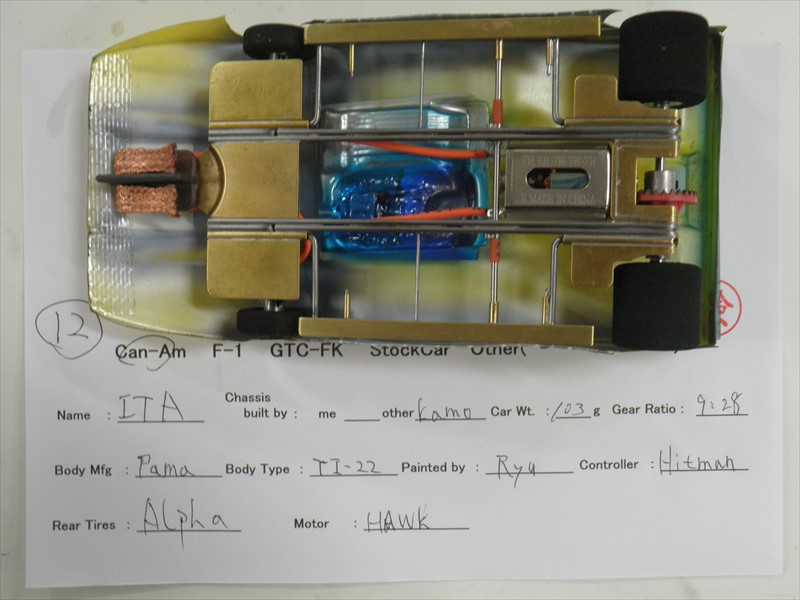 7R 7R 7R 7R 7R
MADE IN CHINA
12
Can-Am F-1 GTC-FK StockCar Other( )
Name : ITA Chassis built by : me ___ other kamo Car Wt. : 103 g Gear Ratio : 9:28
Body Mfg : Pama Body Type : TI-22 Painted by : Ryu Controller : Hitman
Rear Tires : Alpha Motor : HAWK